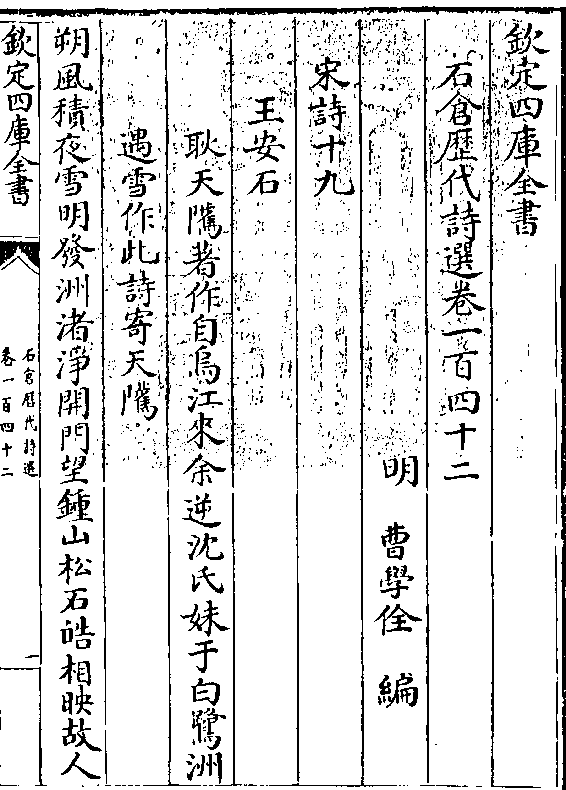 欽定四庫全書
石倉歷代詩選卷一百四十二
明　曹學佺　編
宋詩十九
王安石
耿天隲著作自烏江來余逆沈氏妹于白鷺洲
遇雪作此詩寄天隲
朔風積夜雪明發洲渚淨開門望鍾山松石皓相映故人
欽定四庫全書
石倉歷代詩選
卷一百四十二
一